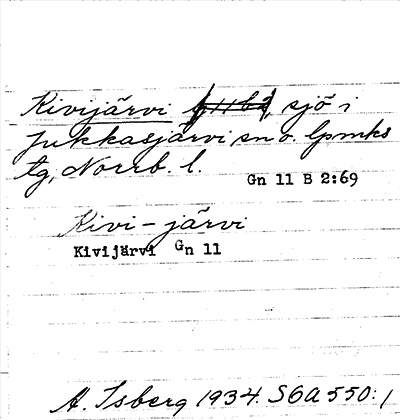 Kivijärvi, sjö i
Jukkasjärvi sn o. lpmks
tg, Norrb. l.
Gn 11 B 2:69
Kivi-järvi
Kivijärvi Gn 11
A. Isberg 1934. S6A550:1